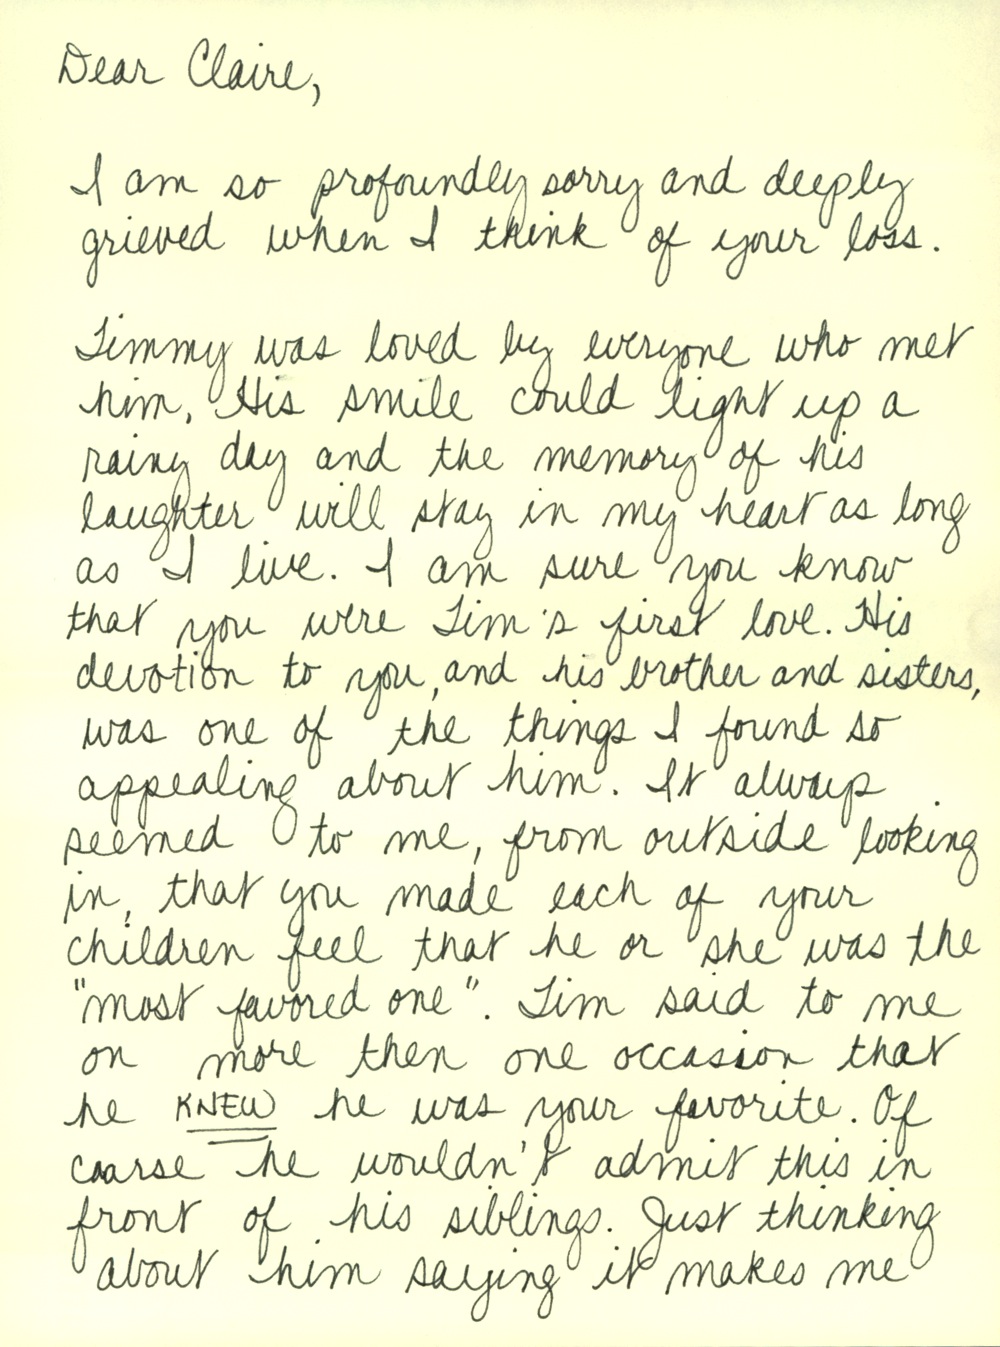 Dear Claire,
I am so profoundly sorry and deeply
grieved when I think of your loss.
Timmy was loved by everyone who met
him. His smile could light up a
rainy day and the memory of his
laughter will stay in my heart as long
as I live. I am sure you know
that you were Tim's first love. His
devotion to you, and his brother and sisters,
was one of the things I found so
appealing about him. It always
seemed to me, from outside looking
in, that you made each of your
children feel that he or she was the
"most favored one". Tim said to me
on more then one occasion that
he KNEW he was your favorite. Of
coarse he wouldn't admit this in
front of his siblings. Just thinking
about him saying it makes me